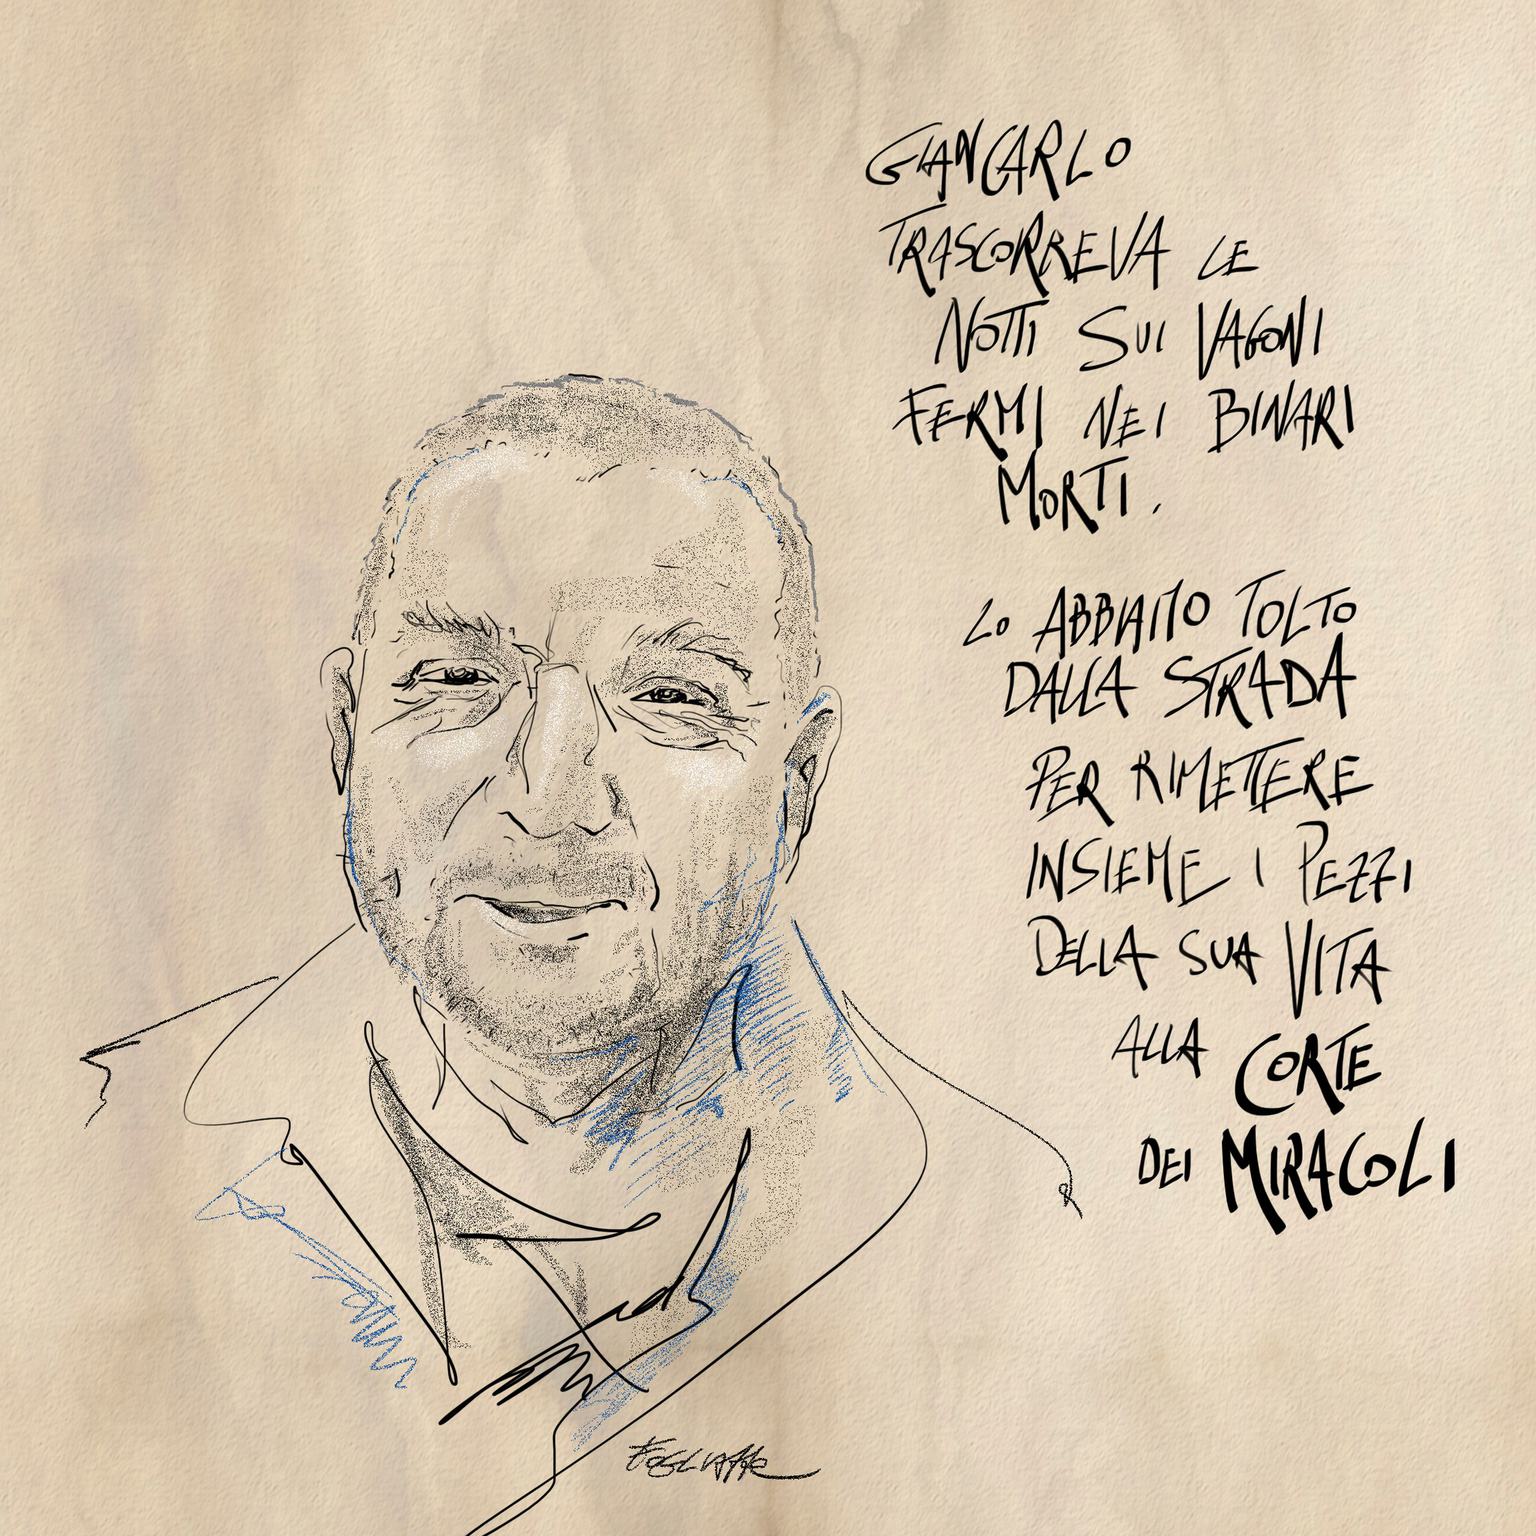 GIANCARLO
TRASCORREVA LE
NOTTI SUI VAGONI
FERMI NEI BINARI
MORTI.
LO ABBIAMO TOLTO
DALLA STRADA
PER RIMETTERE
INSIEME I PEZZI
DELLA SUA VITA
ALLA CORTE
DEI MIRACOLI